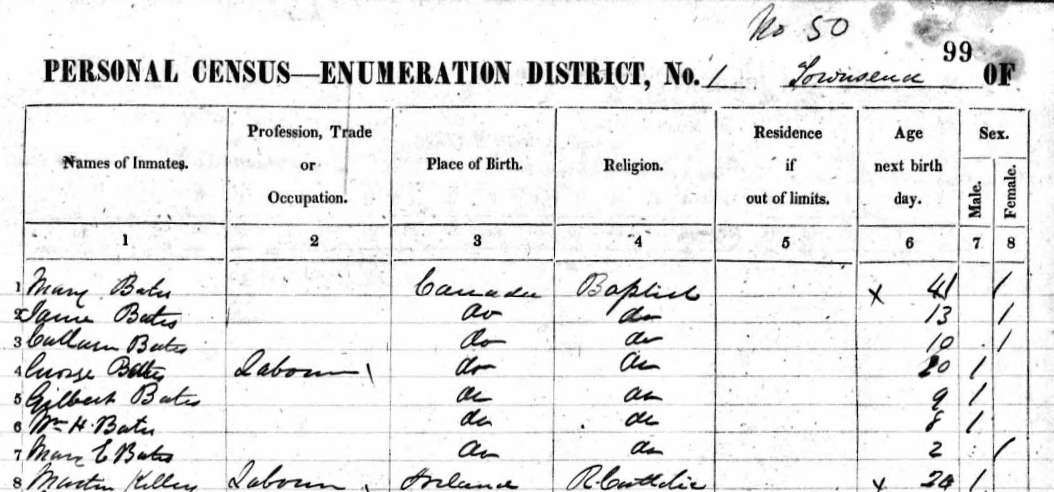 No 50
99
PERSONAL CENSUS—ENUMERATION DISTRICT, No. 1 Townsend OF
Names of Inmates. Profession, Trade or Occupation. Place of Birth. Religion. Residence if out of limits. Age next birth day. Sex. Male. Female.
1 2 3 4 5 6 7 8
1 Mary Bates Canada Baptist x 41 /
2 Bates do do 13 /
3 Bates do do 10 /
4 George Bates Labourer do do 20 /
5 Gilbert Bates do do 9 /
6 Wm H. Bates do do 8 /
7 Mary E Bates do do 2 /
8 Martin Kelley Labourer Ireland R. Catholic x /